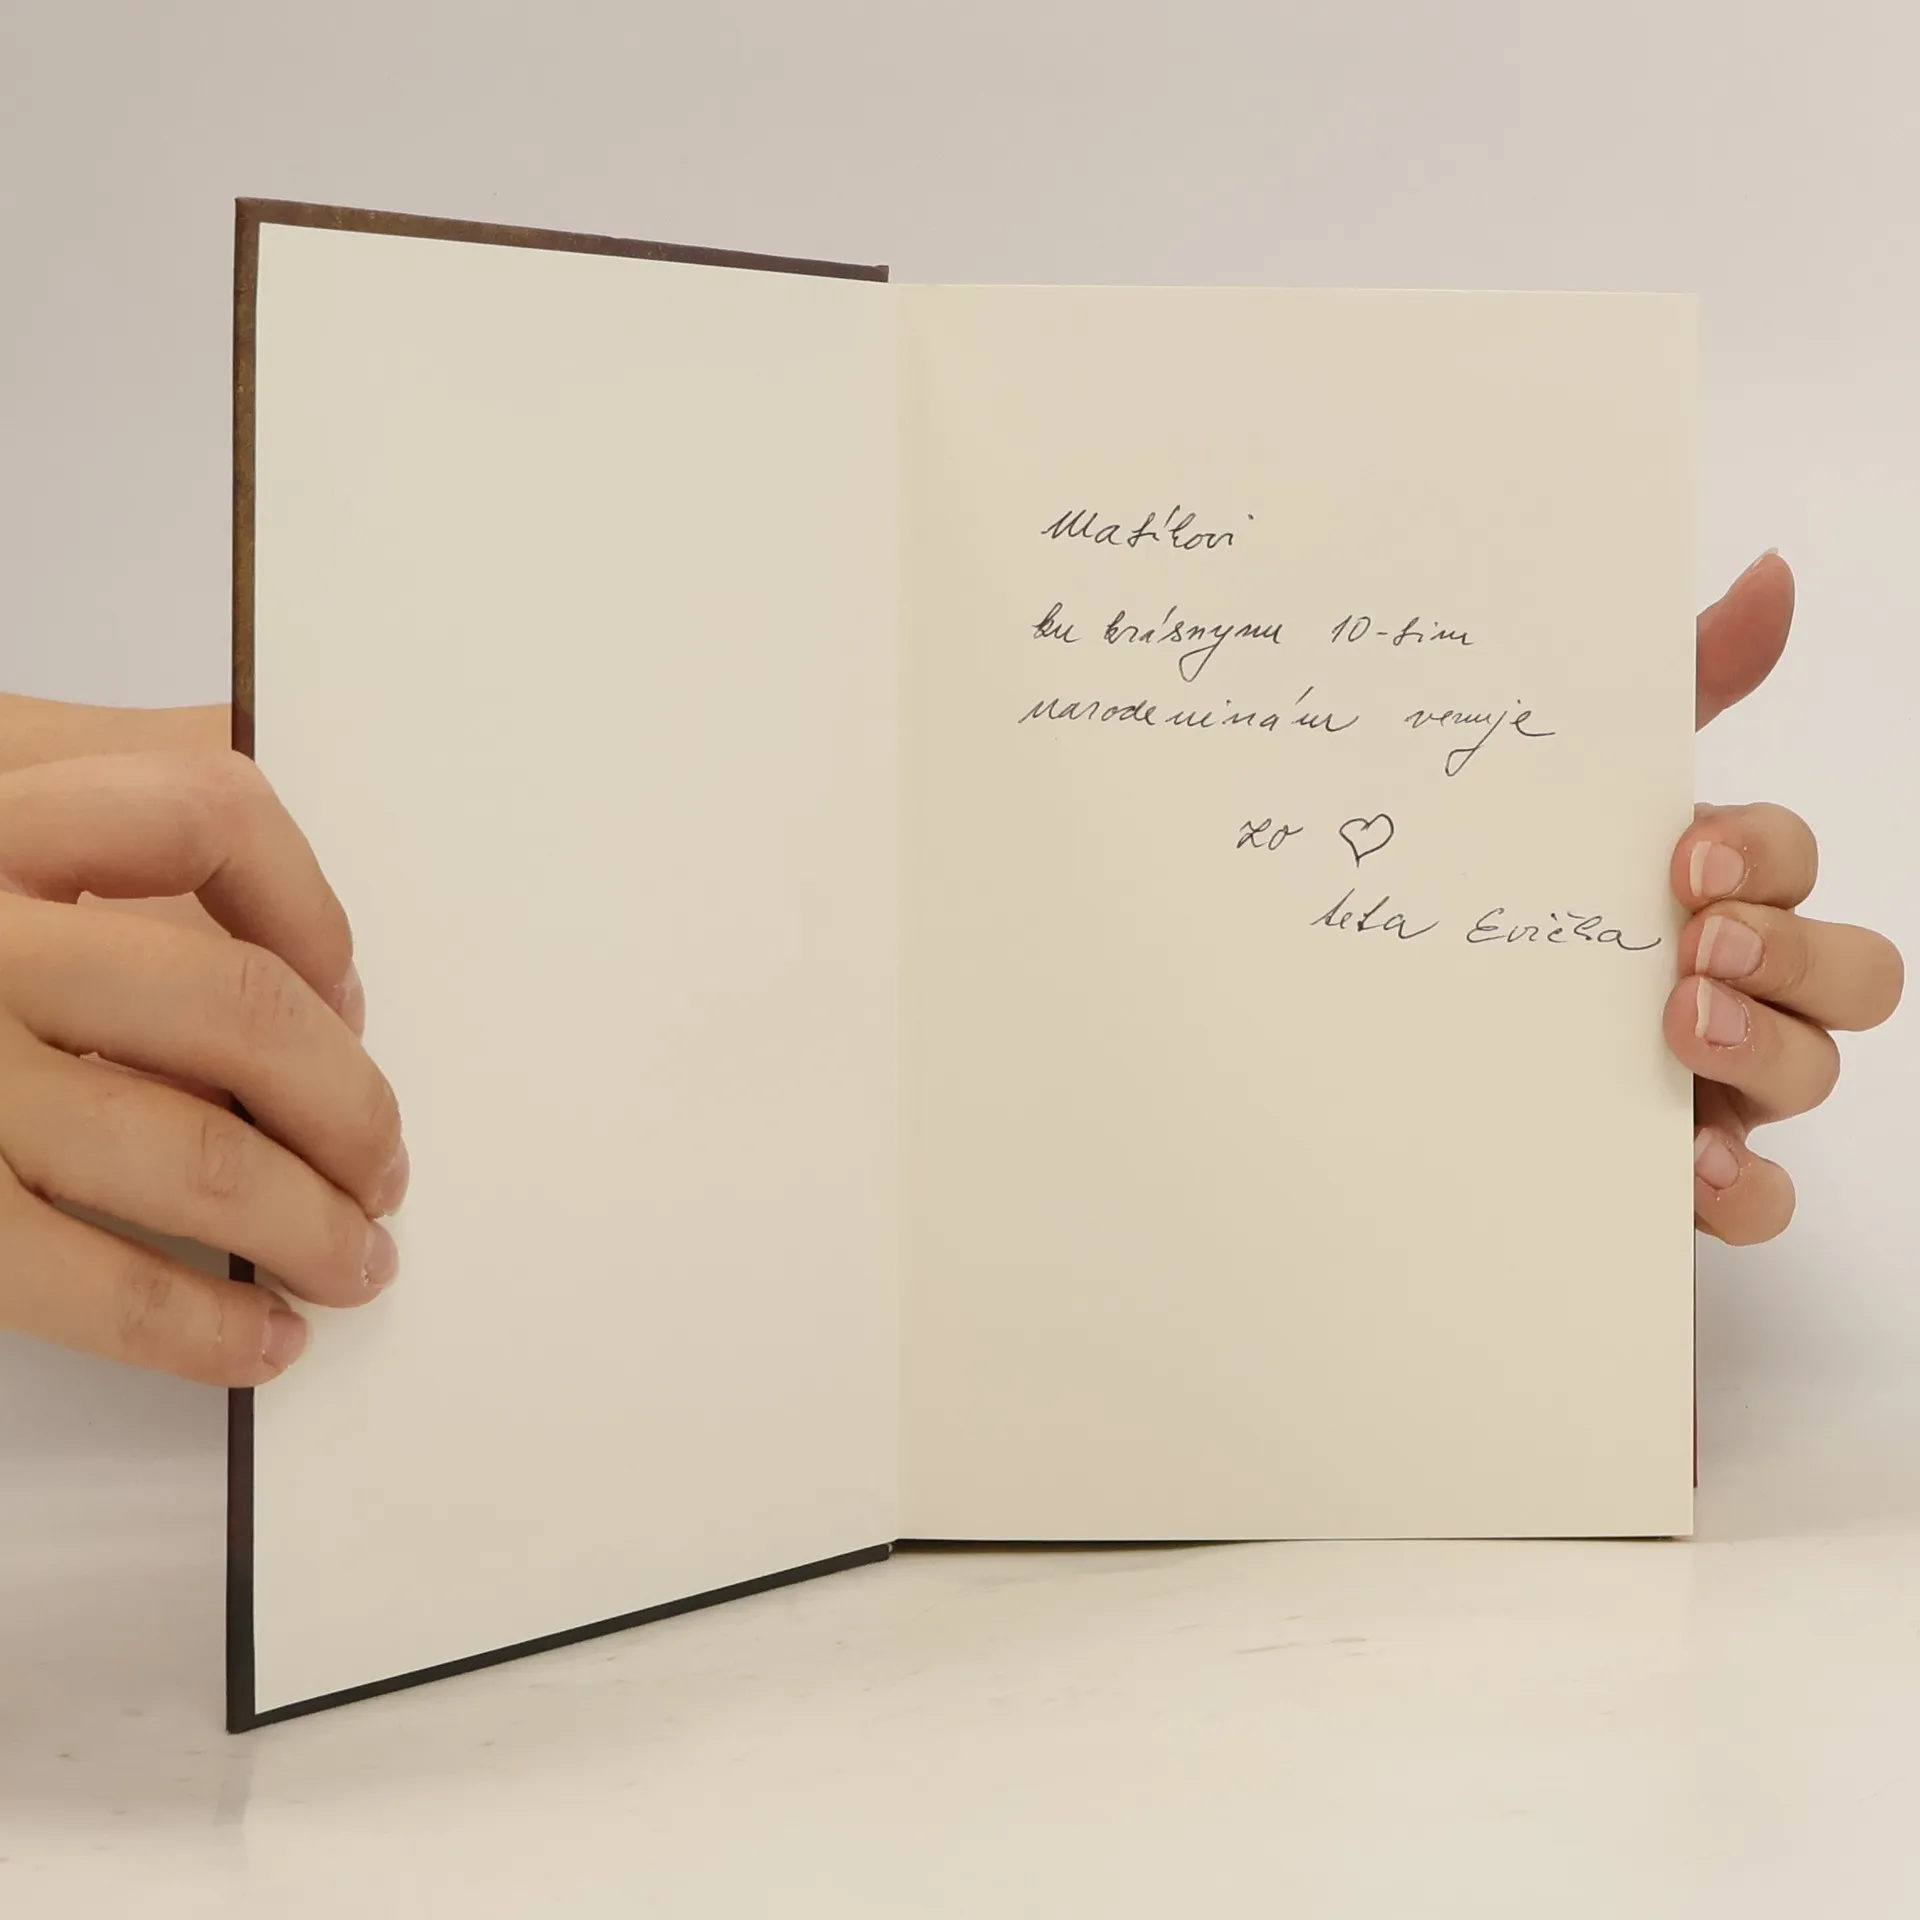 Maťíkovi
ku krásnym 10-tim
narodeninám venuje
zo ♡
teta Evička